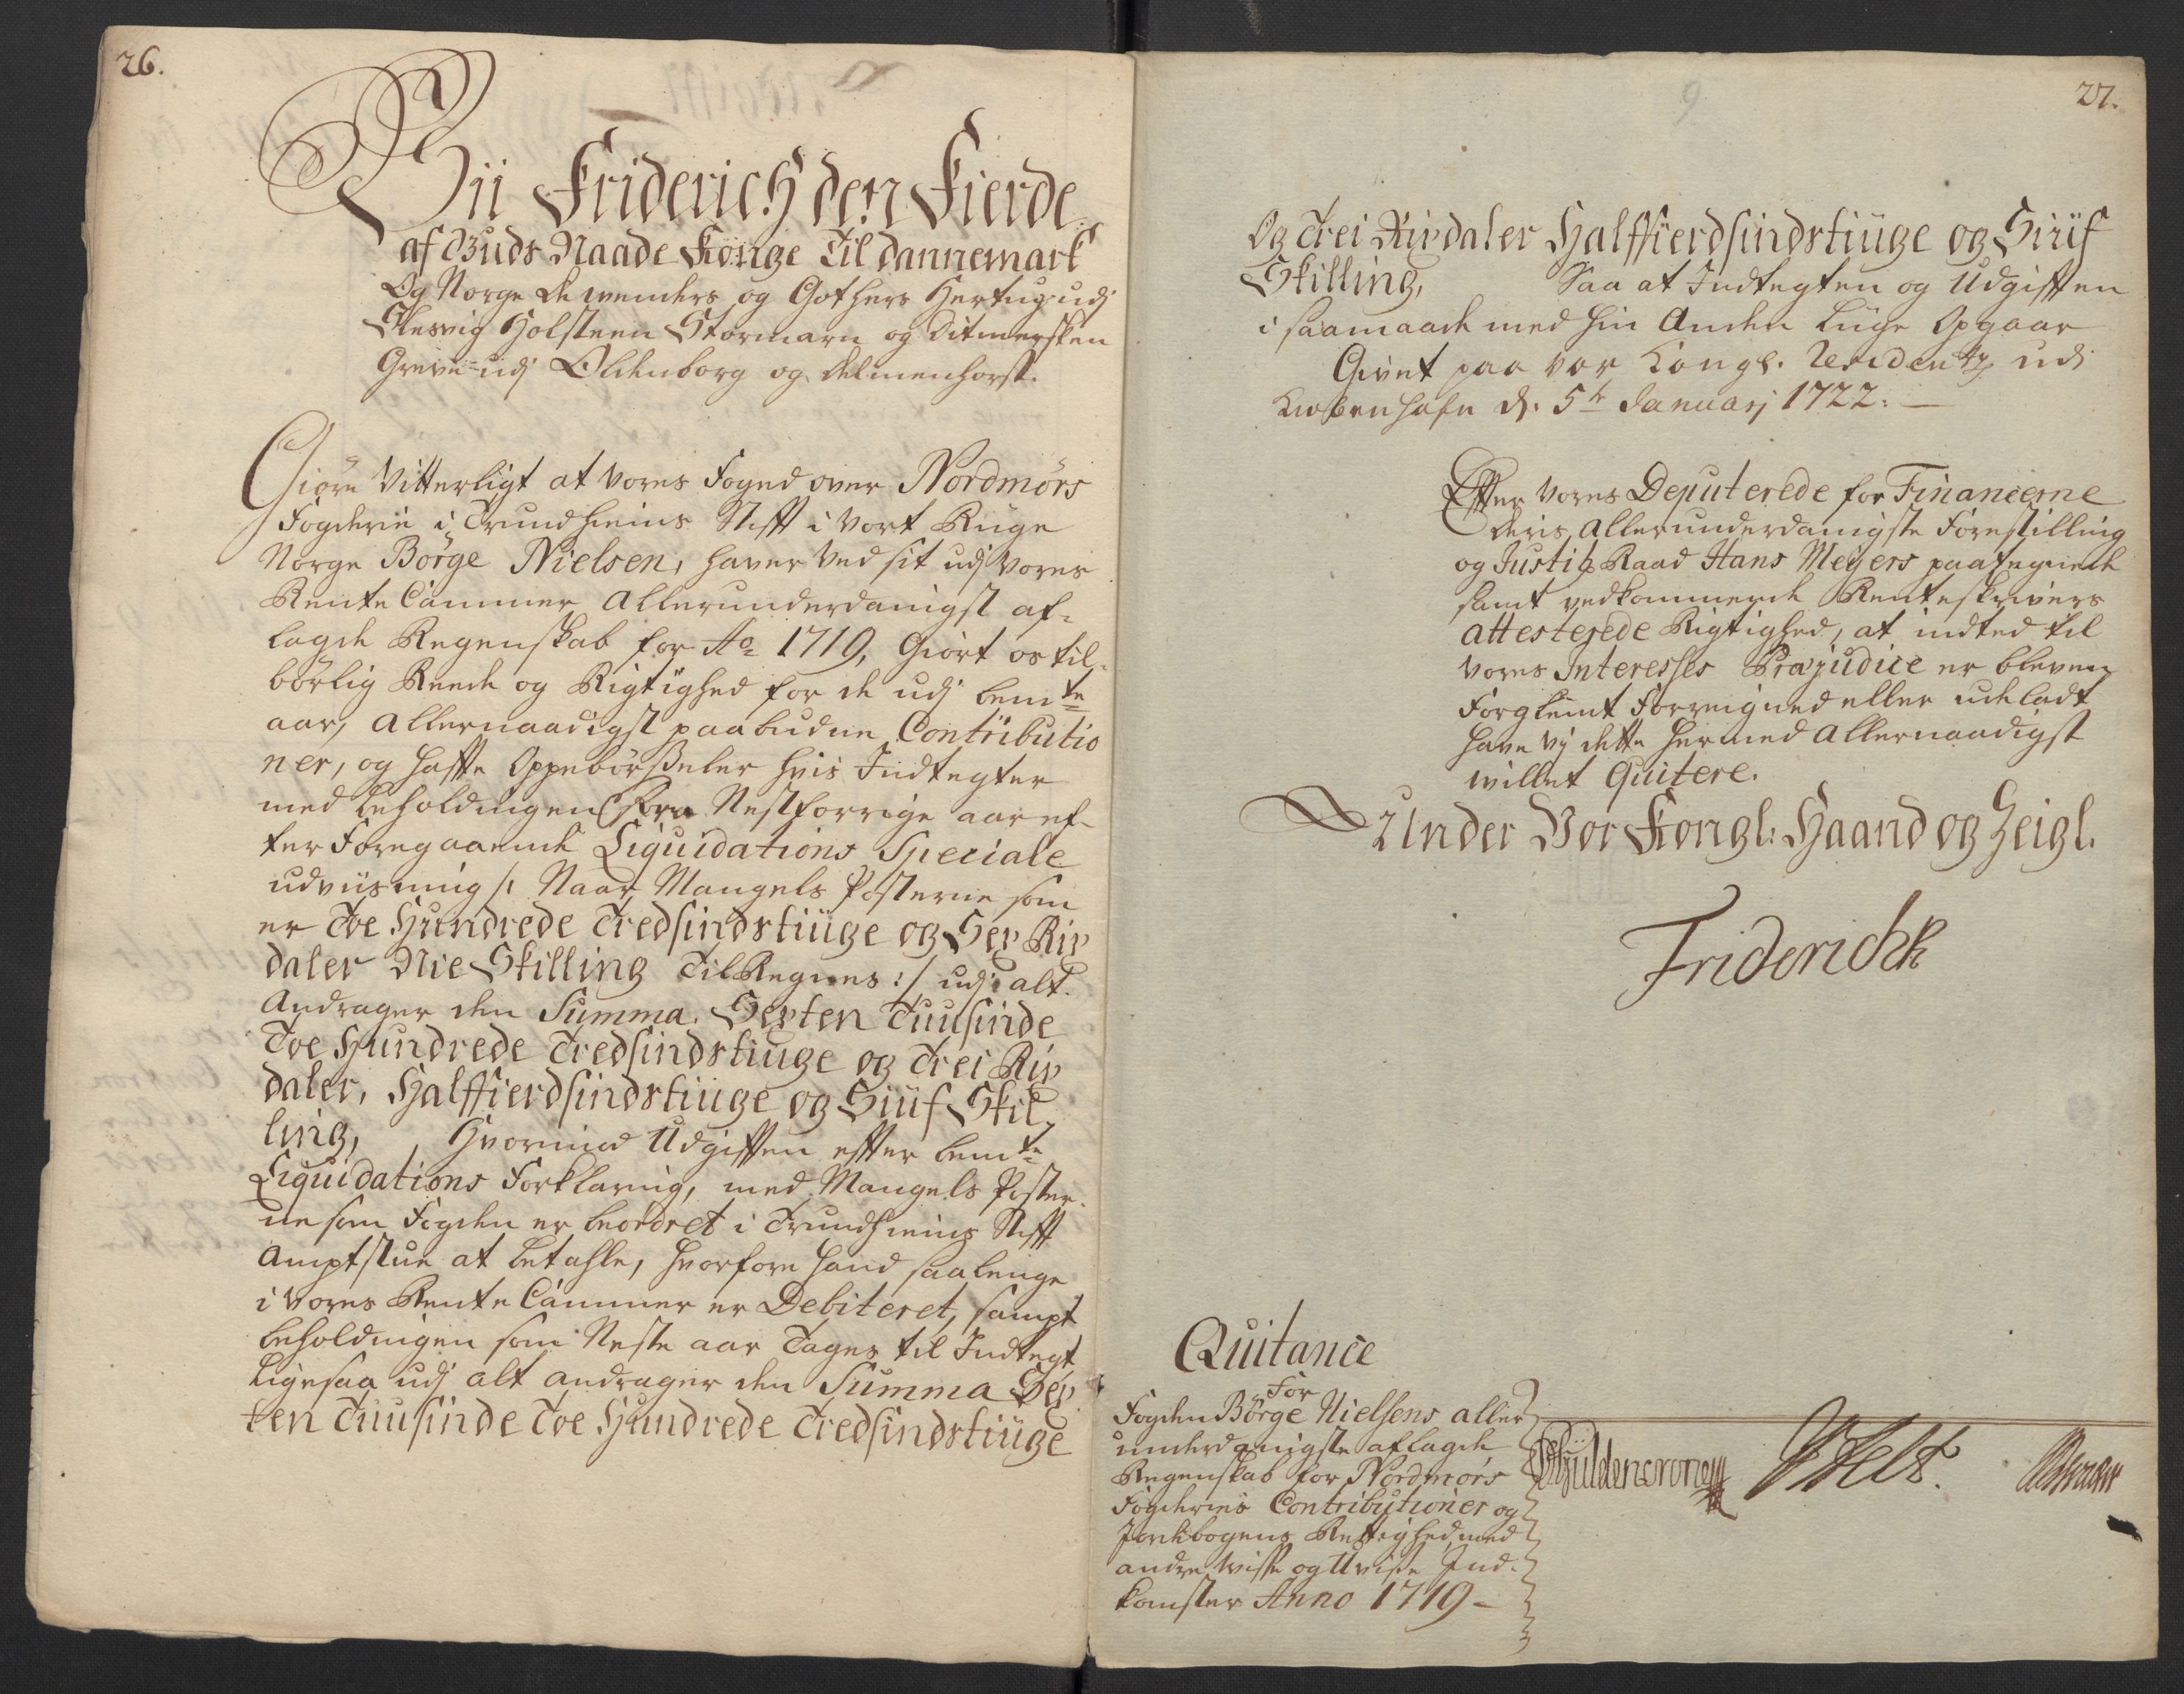 26.
Vii Friderich den Fierde
af Guds Naade Konge Til Dannemark
Og Norge de wenders og Gothers Hertug udj
Slesvig Holsteen Stormarn og Ditmersken
Greve udj Oldenborg og Delmenhorst.
Giöre Vitterligt at vores Foged over Nordmörs
Fogderie i Trundhiems Stifft i vort Riige
Norge Börge Nielsen, haver ved sit udj vores
Rente Cammer Allerunderdanigst af-
lagde Regenskab for Ao 1719, Giort os til-
börlig Reede og Rigtighed for de udj bemte
aar, Allernaadigst paabudne Contributio
ner, og haffte Oppebörßeler hvis Indtegter
med beholdingen fra Nestforrige aar ef-
ter Foregaaende Liquidations Speciale
udviisning /: Naar Mangels Posterne som
er Toe Hundrede Tredsindstiüge og Sex Rix
daler Nie Skilling Til Regnes :/ udj alt
Andrager den Summa Sexten Tuusinde
Toe Hundrede Tredsindstiuge og Trei Rix
daler, Halffierdsindstiüge og Siüf Skil
ling, Hvorimod Udgifften effter bemte
Liquidations Forklaring, med Mangels Poster
ne som Fogden er beordret i Trundhiems Stifft
Amptstue at betahle, hvorfore hand saalenge
i vores Rente Cammer er Debiteret, sampt
beholdningen som Neste aar Tages til Indtegt
Ligesaa udj alt andrager den Summa Sex
ten Tuusinde Toe Hundrede Tredsindstiüge
27.
Og Trei Rixdaler Halffierdsindstiüge og Siüf
Skilling, Saa at Indtegten og Udgifften
i saamaade med hin Anden Liige Opgaar
Givet paa vor Kongl. Residentz udi
Kiøbenhafn d. 5te Januarj 1722. —
Effter vores Deputerede for Financerne
deris Allerunderdanigste Forestilling
og Justitz Raad Hans Meyers paategnede
samt vedkommende Renteskrivers
attesterede Rigtighed, at indted til
vores Interesses Præjudice er bleven
Forglemt Forreigned eller udeladt
have vj dette hermed Allernaadigst
willet Quitere.
Under Vor Kongl: Haand og Zeigl.
Friderich R
Quitance
For
Fogden Börge Nielsens aller
underdanigste aflagde
Regenskab for Nordmörs
Fogderies Contributioner og
Jordebogens Rettighed med
andre wisse og Uvisse Ind-
komster Anno 1719 –
Güldencrone